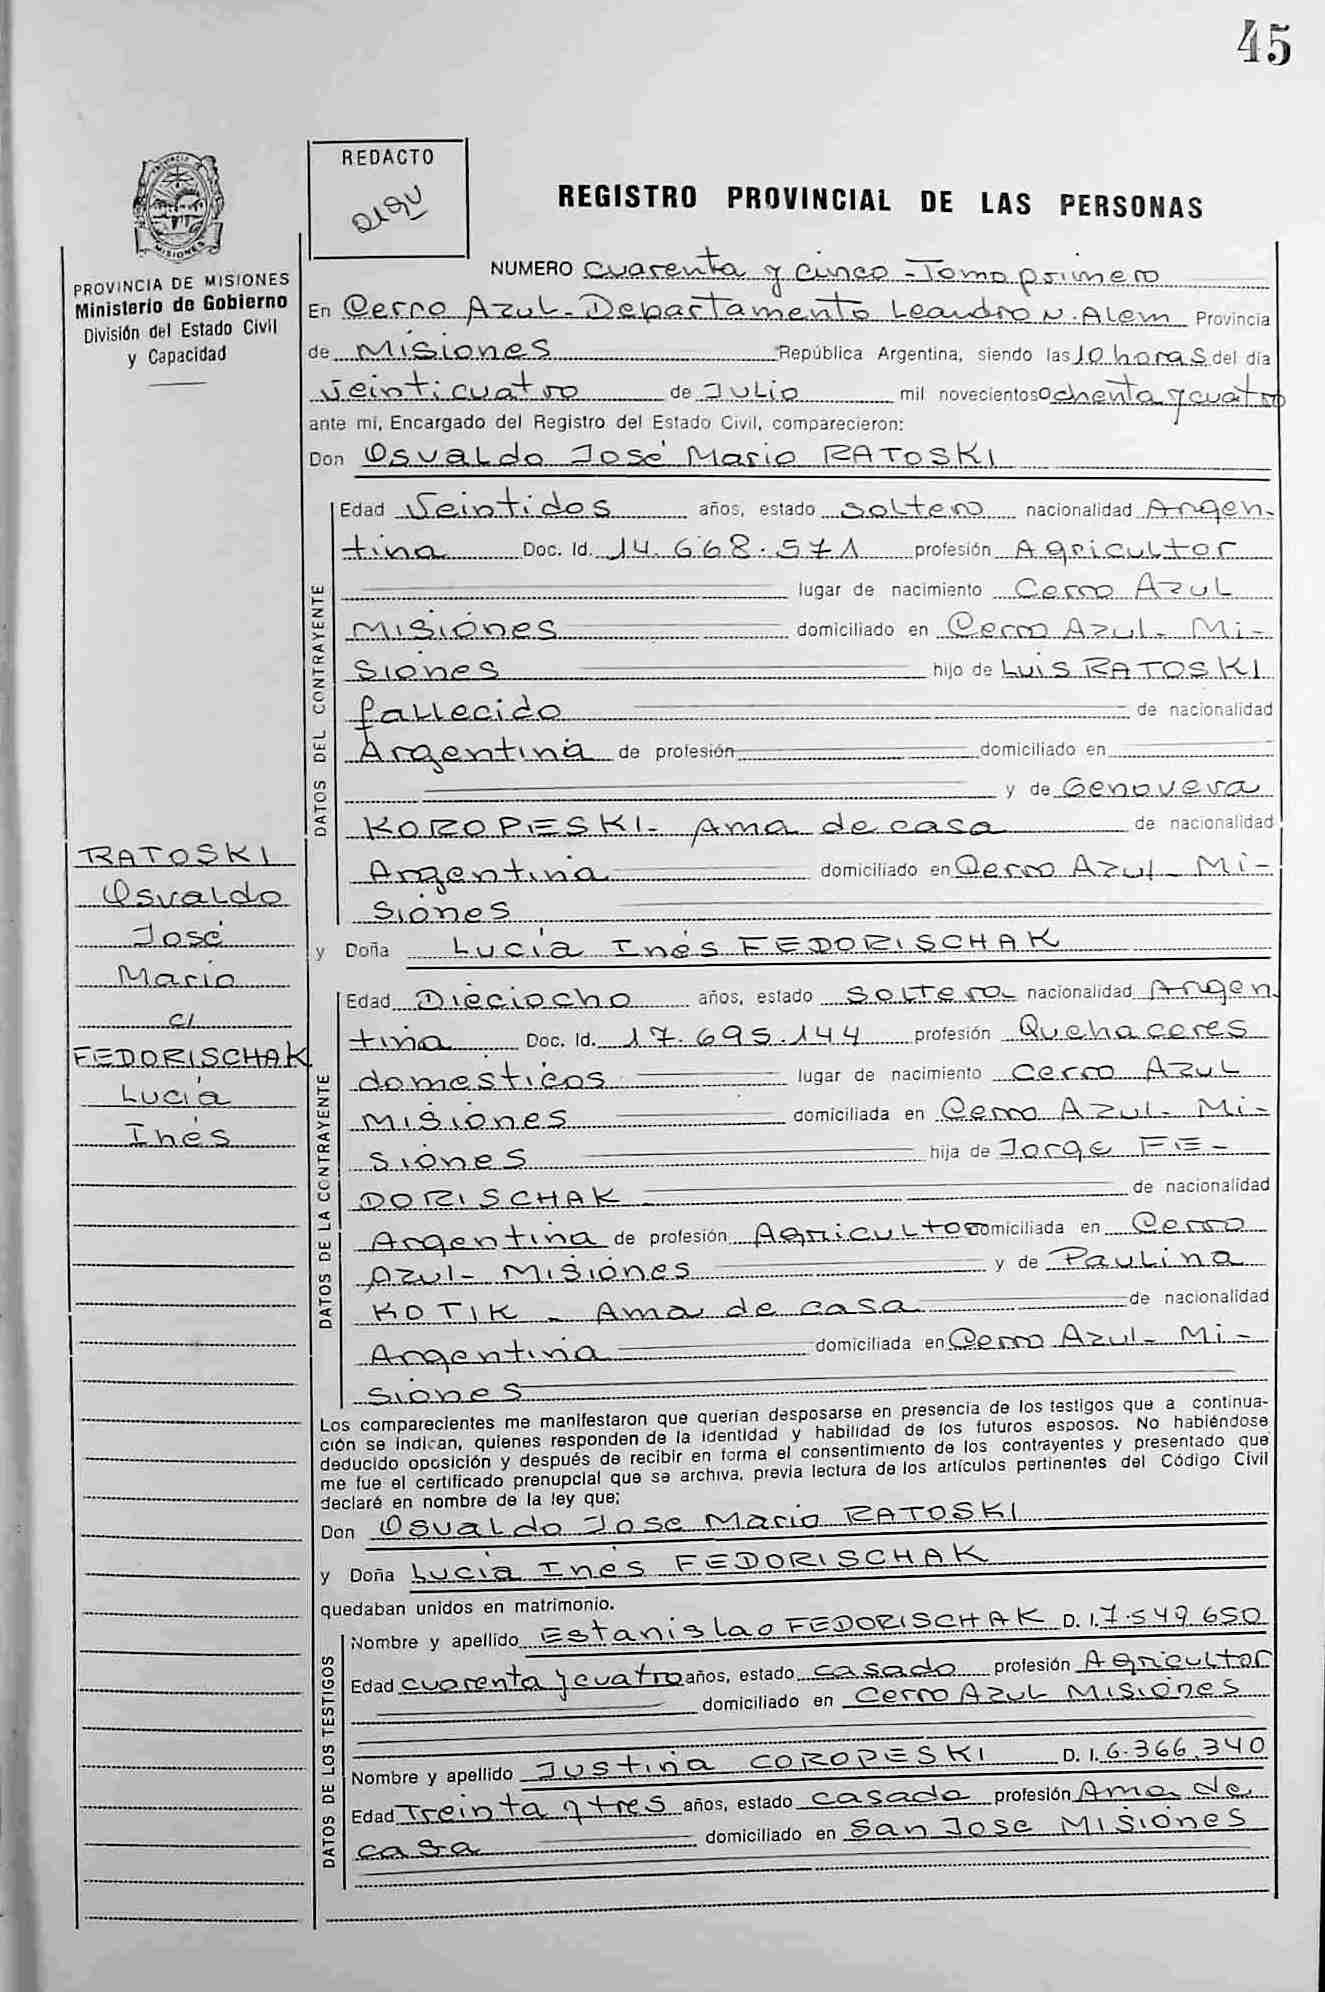 45
REDACTO
REGISTRO PROVINCIAL DE LAS PERSONAS
MISIONES
PROVINCIA DE MISIONES
Ministerio de Gobierno
División del Estado Civil
y Capacidad
NUMERO Cuarenta y cinco - Tomo primero
En Cerro Azul - Departamento Leandro N. Alem Provincia
de Misiones República Argentina, siendo las 10 horas del día
Veinticuatro de Julio mil novecientos Ochenta y cuatro
ante mí, Encargado del Registro del Estado Civil, comparecieron:
Don Osvaldo José Mario RATOSKI
DATOS DEL CONTRAYENTE
Edad Veintidos años, estado soltero nacionalidad Argen-
tina Doc. Id. 14.668.571 profesión Agricultor
lugar de nacimiento Cerro Azul
Misiones domiciliado en Cerro Azul - Mi-
siones hijo de Luis RATOSKI
fallecido de nacionalidad
Argentina de profesión domiciliado en
y de Genoveva
KOROPESKI - Ama de casa de nacionalidad
Argentina domiciliado en Cerro Azul - Mi-
siones
RATOSKI
Osvaldo
José
Mario
c/
FEDORISCHAK
Lucía
Inés
y Doña Lucía Inés FEDORISCHAK
DATOS DE LA CONTRAYENTE
Edad Dieciocho años, estado Soltera nacionalidad Argen
tina Doc. Id. 17.695.144 profesión Quehaceres
domésticos lugar de nacimiento Cerro Azul
Misiones domiciliada en Cerro Azul - Mi-
siones hija de Jorge FE-
DORISCHAK de nacionalidad
Argentina de profesión Agricultor domiciliada en Cerro
Azul - Misiones y de Paulina
KOTIK - Ama de casa de nacionalidad
Argentina domiciliada en Cerro Azul - Mi-
siones
Los comparecientes me manifestaron que querían desposarse en presencia de los testigos que a continua-
ción se indican, quienes responden de la identidad y habilidad de los futuros esposos. No habiéndose
deducido oposición y después de recibir en forma el consentimiento de los contrayentes y presentado que
me fue el certificado prenupcial que se archiva, previa lectura de los artículos pertinentes del Código Civil
declaré en nombre de la ley que:
Don Osvaldo Jose Mario RATOSKI
y Doña Lucía Inés FEDORISCHAK
quedaban unidos en matrimonio.
DATOS DE LOS TESTIGOS
Nombre y apellido Estanislao FEDORISCHAK D. I. 7.549.650
Edad cuarenta y cuatro años, estado casado profesión Agricultor
domiciliado en Cerro Azul Misiones
Nombre y apellido Justina COROPESKI D. I. 6.366.340
Edad Treinta y tres años, estado casada profesión Ama de
casa domiciliado en San Jose Misiones